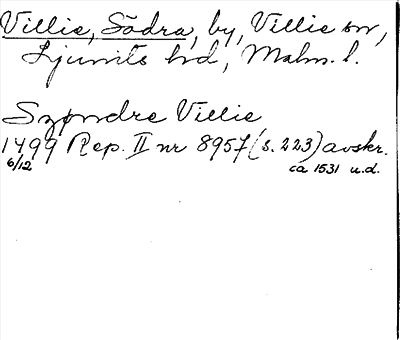 Villie, Södra, by, Villie sn,
Ljunits hd, Malm. l.
Szøndre Villie
1499 Rep. II nr 8957 (s. 223) avskr.
6/12 ca 1531 u.d.